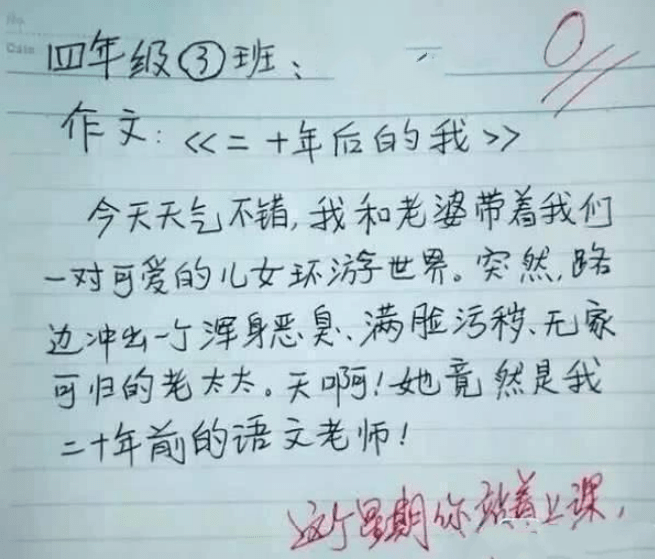 No
Date
四年级③班：
0
作文：<<二十年后的我>>
今天天气不错，我和老婆带着我们
一对可爱的儿女环游世界。突然，路
边冲出一个浑身恶臭、满脸污秽、无家
可归的老太太。天啊！她竟然是我
二十年前的语文老师！
这个星期你站着上课，